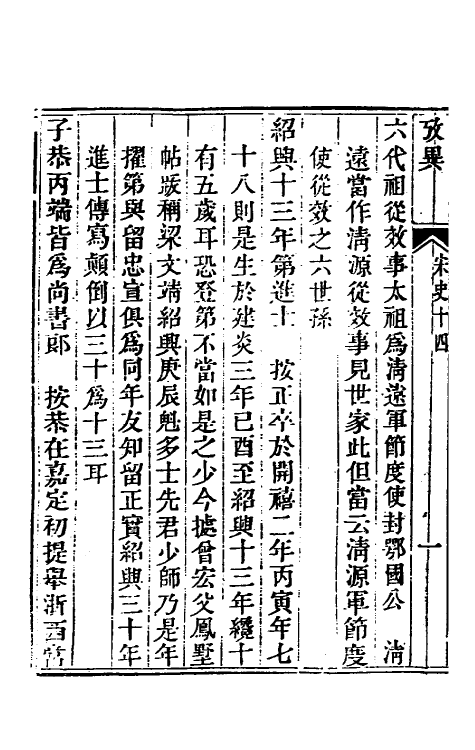 攷異　宋史十四　一
六代祖從效事太祖爲清遠軍節度使封鄂國公　清
遠當作清源從效事見世家此但當云清源軍節度
使從效之六世孫
紹興十三年第進士　按正卒於開禧二年丙寅年七
十八則是生於建炎三年己酉至紹興十三年纔十
有五歲耳恐登第不當如是之少今據曾宏父鳳墅
帖版稱梁文端紹興庚辰魁多士先君少師乃是年
擢第與留忠宣俱爲同年友知留正實紹興三十年
進士傳寫顛倒以三十爲十三耳
子恭丙端皆爲尚書郎　按恭在嘉定初提舉浙西常